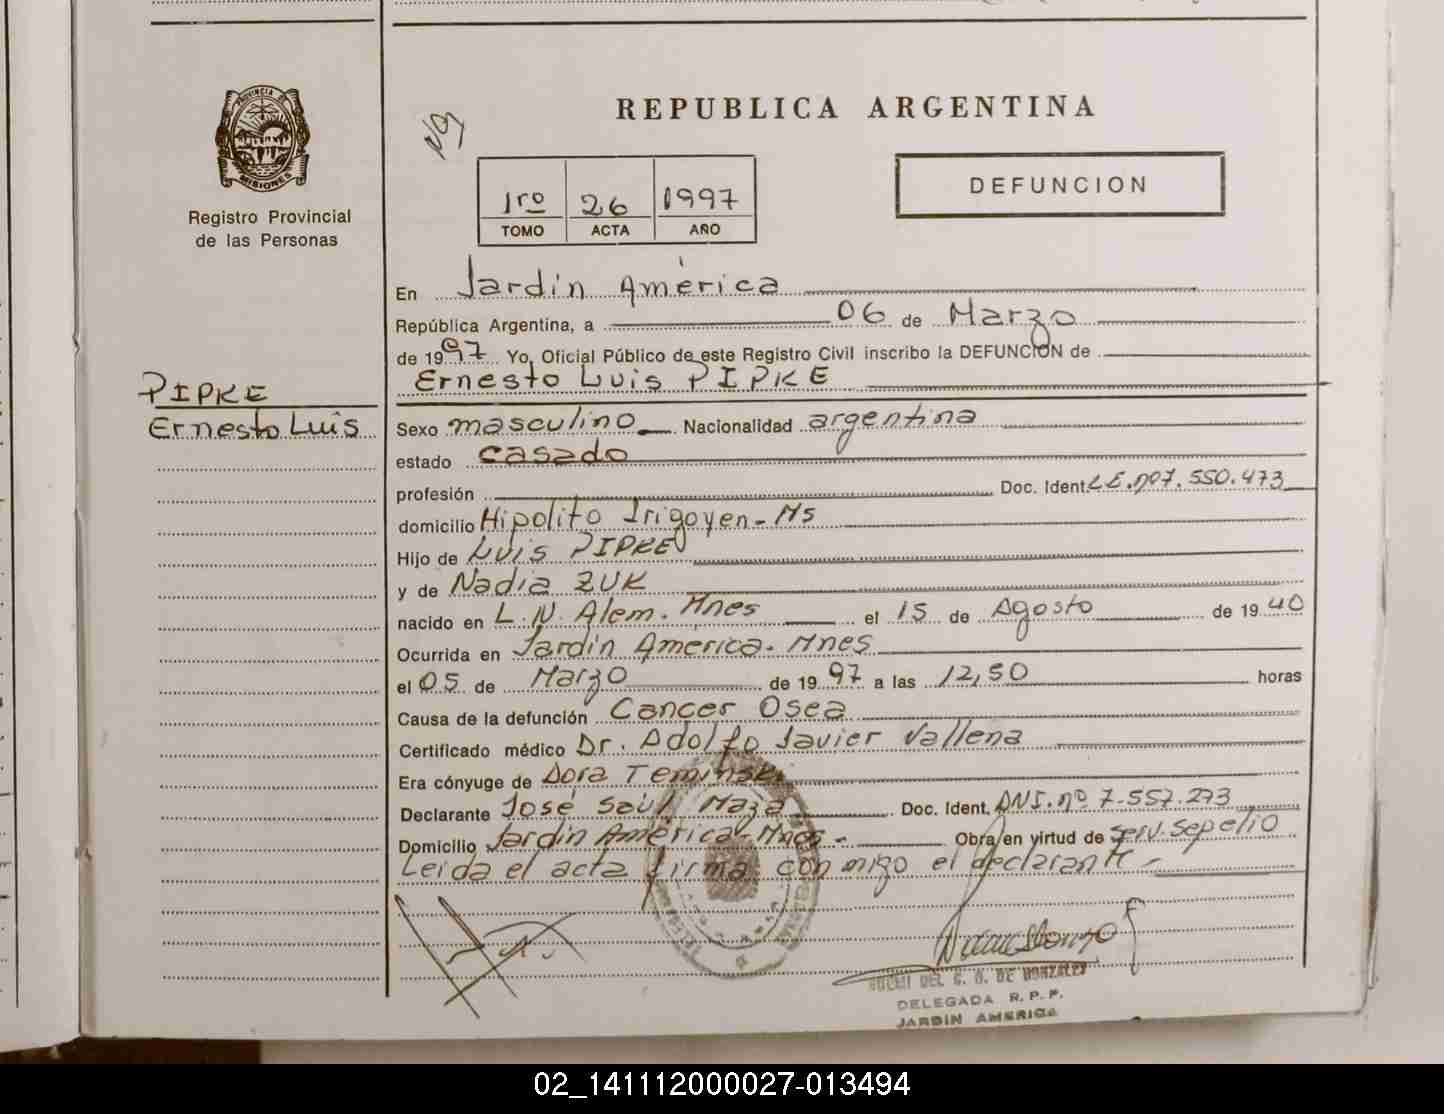 PROVINCIA DE
MISIONES
Registro Provincial
de las Personas
REPUBLICA ARGENTINA
DEFUNCION
1ro 26 1997
TOMO ACTA AÑO
En Jardín América
República Argentina, a 06 de Marzo
de 1997 Yo, Oficial Público de este Registro Civil inscribo la DEFUNCION de
Ernesto Luis PIPKE
PIPKE
Ernesto Luis
Sexo masculino Nacionalidad argentina
estado casado
profesión Doc. Ident. L.E. nº 7.550.473
domicilio Hipolito Irigoyen - Ms
Hijo de Luis PIPKE
y de Nadia ZUK
nacido en L.N. Alem. Mnes el 15 de Agosto de 1940
Ocurrida en Jardín América. Mnes
el 05 de Marzo de 1997 a las 12,50 horas
Causa de la defunción Cancer Osea
Certificado médico Dr. Adolfo Javier Vallena
Era cónyuge de Dora Teminski
Declarante José Saúl Maza Doc. Ident. DNI. nº 7.557.273
Domicilio Jardín América - Mnes - Obra en virtud de serv. sepelio
Leída el acta firma conmigo el declarante -
DEL C. G. DE GONZALEZ
DELEGADA R. P. P.
JARDIN AMERICA
02_141112000027-013494